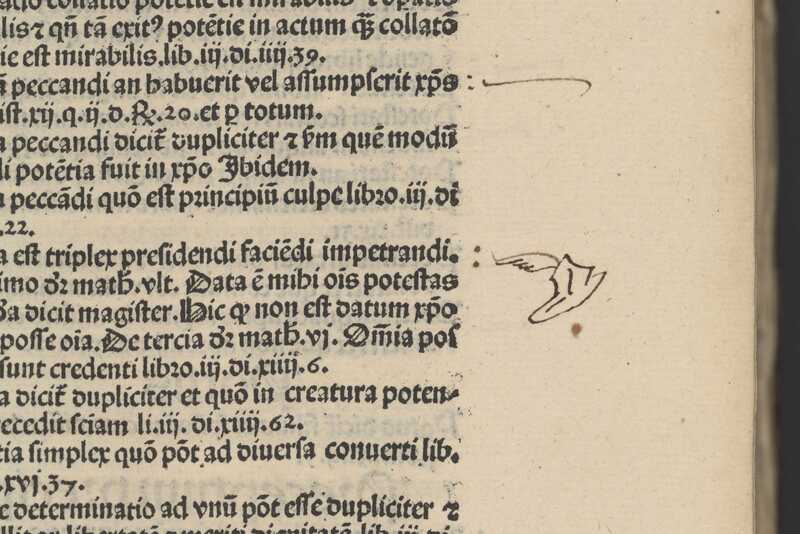 lis ⁊ qn̄ tā exit⁹ potētie in actum q̄ʒ collatō
ie est mirabilis.lib.iij.di.iiij.39.
peccandi an habuerit vel assumpserit xp̄s :
ist.xij.q.ij.d.℞.20.et p̲ totum.
a peccandi dicit̄ dupliciter ⁊ v̄m quē modū
di potētia fuit in xp̄o Ibidem.
a peccādi quō est principiū culpe libro.iij.di
.22.
a est triplex presidendi faciēdi impetrandi. :
imo dr̄ math̄.vlt. Data ē mihi oīs potestas
da dicit magister. Hic qꝫ non est datum xp̄o
posse oīa. De tercia dr̄ math̄.vj. Om̄ia pos
sunt credenti libro.iij.di.xiiij.6.
a dicit̄ dupliciter et quō in creatura poten⸗
ecedit sciam li.iij. di.xiiij.62.
tia simplex quō pōt ad diuersa conuerti lib.
.xvj.37.
c determinatio ad vnū pōt esse dupliciter ⁊